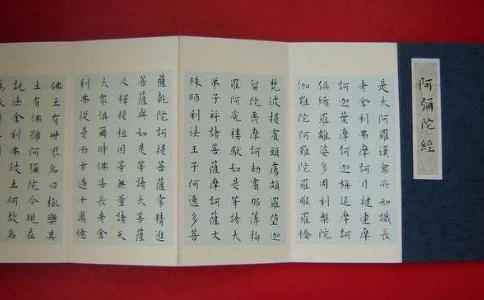 阿彌陀經
是大阿羅漢眾所知識長
老舍利弗摩訶目犍連摩
訶迦葉摩訶迦旃延摩訶
俱絺羅離婆多周利槃陀
伽難陀阿難陀羅睺羅憍
梵波提賓頭盧頗羅墮迦
留陀夷摩訶劫賓那薄拘
羅阿㝹樓馱如是等諸大
弟子并諸菩薩摩訶薩文
殊師利法王子阿逸多菩
薩乾陀訶提菩薩常精進
菩薩與如是等諸大菩薩
及釋提桓因等無量諸天
大眾俱爾時佛告長老舍
利弗從是西方過十萬億
佛土有世界名曰極樂其
土有佛號阿彌陀今現在
說法舍利弗彼土何故名